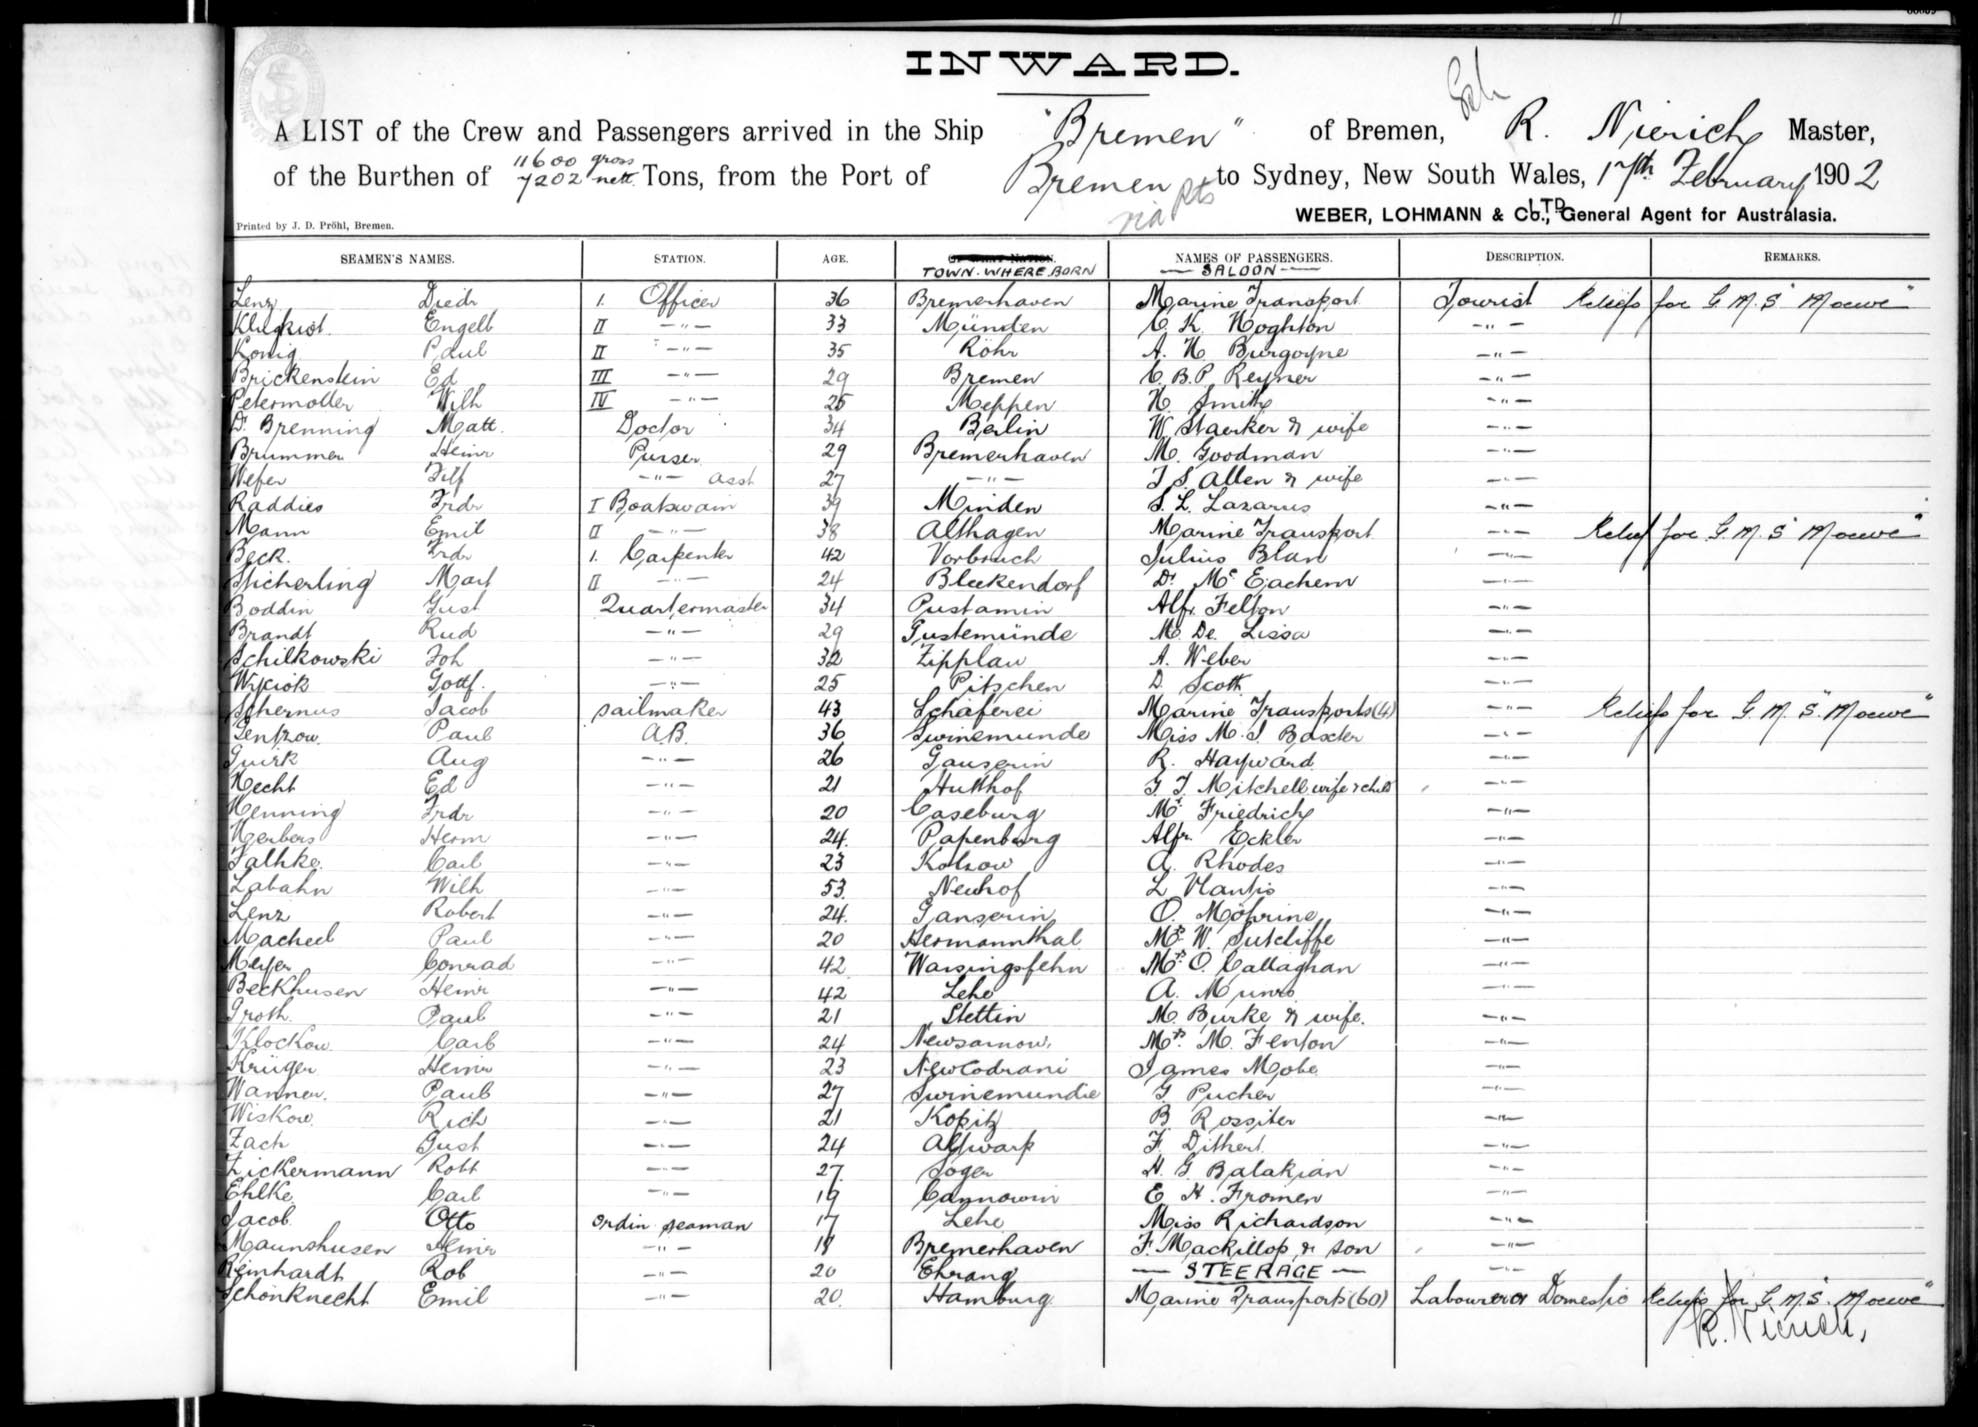 INWARD.
A LIST of the Crew and Passengers arrived in the Ship "Bremen" of Bremen, R. Nierich Master,
of the Burthen of 11600 gross 7202 nett. Tons, from the Port of Bremen via Pts to Sydney, New South Wales, 17th February 1902
WEBER, LOHMANN & Co., LTD. General Agent for Australasia.
Printed by J. D. Pröhl, Bremen.
SEAMEN'S NAMES. STATION. AGE. TOWN WHERE BORN NAMES OF PASSENGERS. DESCRIPTION. REMARKS.
— SALOON —
Lenz Diedr 1. Officer 36 Bremerhaven Marine Transport Tourist Reliefs for G. M. S "Moewe"
Klugkist Engelb II —"— 33 Münden C. K. Hoghton —"—
Konig Paul II —"— 35 Röhr A. H Burgoyne —"—
Brickenstein Ed III —"— 29 Bremen C. B. P. Reyner —"—
Petermoller Wilh IV —"— 25 Meppen H. Smith —"—
Dr. Brenning Matt. Doctor 34 Berlin W. Staerker & wife —"—
Brummer Heinr Purser 29 Bremerhaven M. Goodman —"—
Wefer —"— asst 27 —"— J S. Allen & wife —"—
Raddies Frdr I Boatswain 39 Minden S. L. Lazarus —"—
Mann Emil II —"— 38 Althagen Marine Transport —"— Relief for G. M. S "Moewe"
Beck. Frdr 1. Carpenter 42 Vorbruch Julius Blau —"—
Sticherling Mart II —"— 24 Bleckendorf Dr. McEachern —"—
Boddin Gust Quartermaster 34 Pustamin Alfr. Felton —"—
Brandt Rud —"— 29 Gustemünde De Lissa —"—
Schilkowski Joh —"— 32 Zipplau A. Weber —"—
Gottf. —"— 25 Pitschen D. Scott —"—
Schernus Jacob Sailmaker 43 Schäferei Marine Transports (4) —"— Reliefs for G. M. S. "Moewe"
Gentzow Paul A.B. 36 Swinemunde Miss M. J. Baxter —"—
Guirk Aug —"— 26 Ganserin R. Hayward —"—
Hecht Ed —"— 21 Hutthof G. J. Mitchell wife & child —"—
Henning Frdr —"— 20 Caseburg Mr. Friedrich —"—
Herbers Herm —"— 24. Papenburg Alfr. Eckler —"—
Carl —"— 23 Kolzow A. Rhodes —"—
Labahn Wilh —"— 53. Neuhof L. —"—
Lenz Robert —"— 24. Ganserin O. Möhrine —"—
Macheel Paul —"— 20 Hermannthal Mrs W. Sutcliffe —"—
Meyer Conrad —"— 42 Warsingsfehn Mrs O. Callaghan —"—
Beckhusen Heinr —"— 42 Lehe A. Munro —"—
Groth. Paul —"— 21 Stettin M. Burke & wife. —"—
Klockow Carl —"— 24 Newsarnow, Mrs. M. Fenton —"—
Krüger Heinr —"— 23 James —"—
Wanner. Paul —"— 27 Swinemunde G. Pucher —"—
Wiskow. Rich —"— 21 Kopitz B Rossiter —"—
Zach Gust —"— 24 Altwarp F. Dithert —"—
Zickermann Robt —"— 27. Soger H. G Balakian —"—
Ehlke Carl —"— 19 Cannowin E H. Fromen —"—
Jacob. Otto Ordin seaman 17 Lehe Miss Richardson —"—
Maunshusen Heinr —"— 18 Bremerhaven F. Mackillop & son —"—
Reinhardt Rob —"— 20 Ehrang — STEERAGE — —"—
Schonknecht Emil —"— 20. Hamburg Marine Transports (60) Labourer or Domestic Reliefs for G. M. S. "Moewe"
R. Nierich.